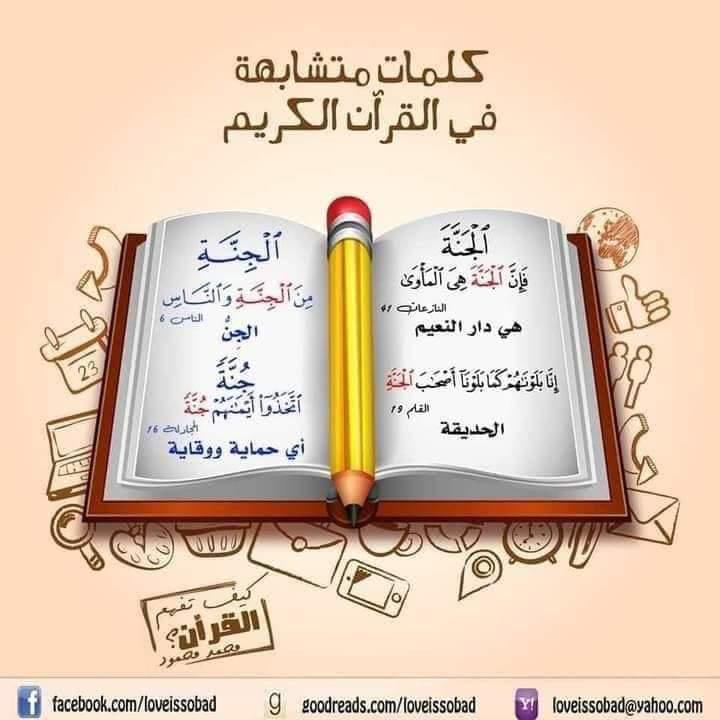 كلمات متشابهة
في القرآن الكريم
ٱلْجَنَّةَ
فَإِنَّ ٱلْجَنَّةَ هِىَ ٱلْمَأْوَىٰ
النازعات 41
هي دار النعيم
إِنَّا بَلَوْنَٰهُمْ كَمَا بَلَوْنَآ أَصْحَٰبَ ٱلْجَنَّةِ
القلم 19
الحديقة
ٱلْجِنَّةِ
مِنَ ٱلْجِنَّةِ وَٱلنَّاسِ
الناس 6
الجنُّ
جُنَّةً
ٱتَّخَذُوٓا۟ أَيْمَٰنَهُمْ جُنَّةً
المجادلة 16
أي حماية ووقاية
23
كيف تفهم
القرآن؟
محمد محمود
facebook.com/loveissobad
g goodreads.com/loveissobad
Y! loveissobad@yahoo.com